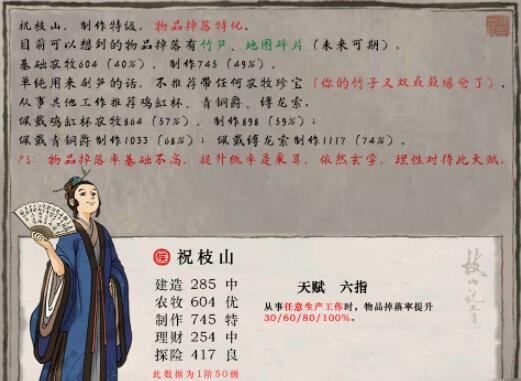 祝枝山，制作特级，物品掉落特化。
目前可以想到的物品掉落有竹笋、地图碎片（未来可期）。
基础农牧604（40%），制作745（49%）。
单纯用来刷笋的话，不推荐带任何农牧珍宝（你的竹子又双叒叕爆仓了）。
从事其他工作推荐鸡缸杯、青铜爵、缚龙索。
佩戴鸡缸杯农牧864（57%），制作898（59%）；
佩戴青铜爵制作1033（68%）；佩戴缚龙索制作1117（74%）。
PS：物品掉落率基础不高，提升概率是乘算，依然玄学，理性对待此天赋。
祝枝山
建造 285 中
农牧 604 优
制作 745 特
理财 254 中
探险 417 良
此数据为1阶50级
天赋 六指
从事任意生产工作时，物品掉落率提升
30/60/80/100%。